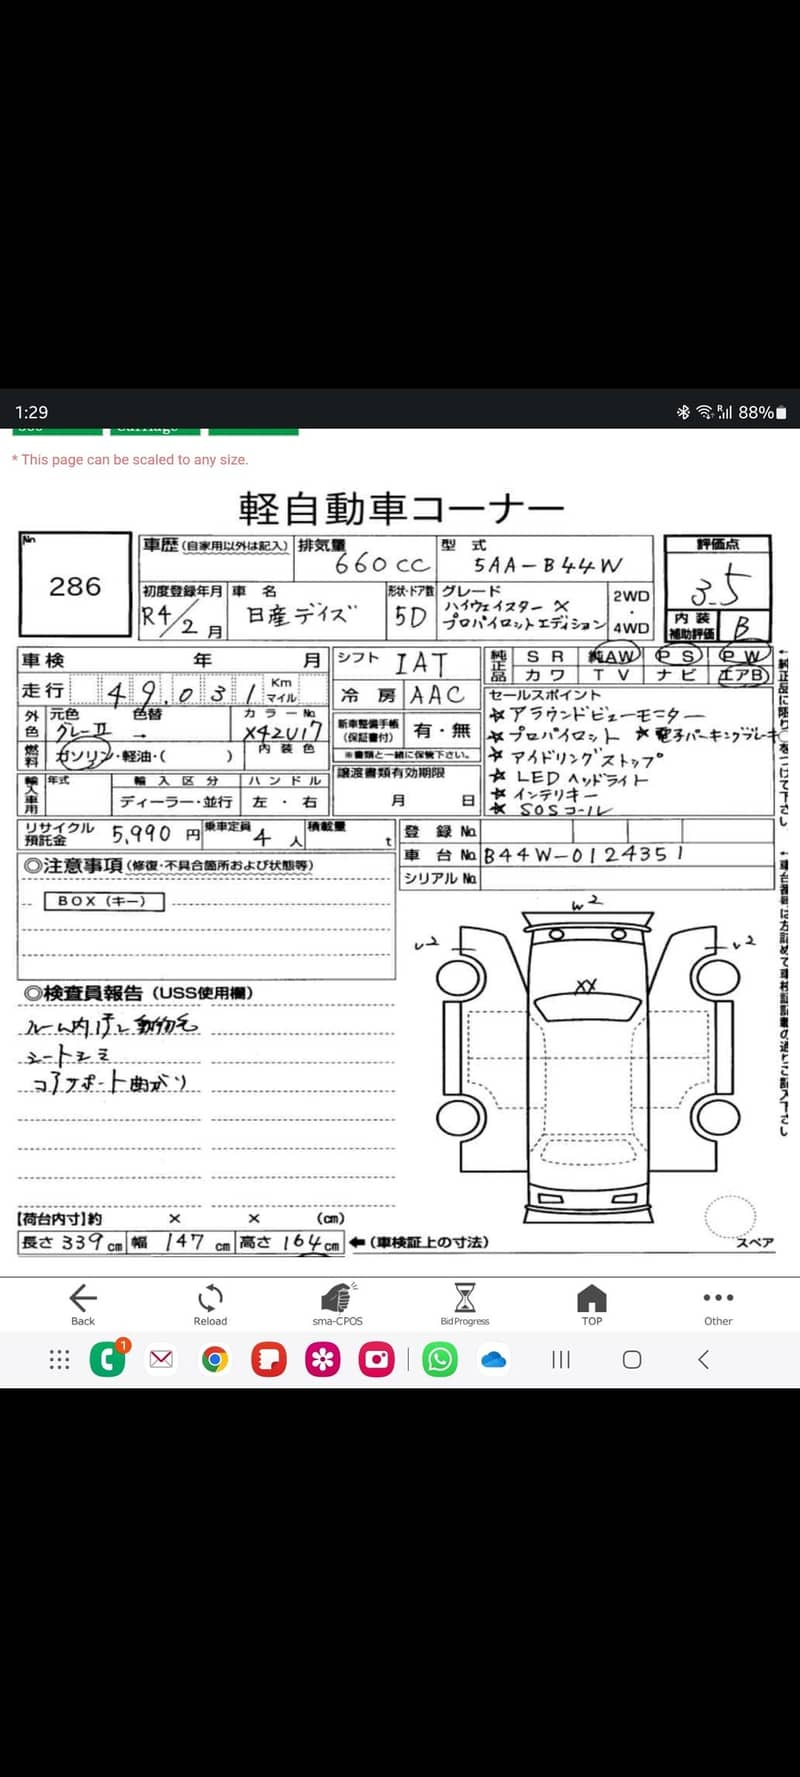 1:29
88%
* This page can be scaled to any size.
軽自動車コーナー
No
286
車歴(自家用以外は記入) 排気量 660cc 型 式 5AA-B44W
評価点 3.5
初度登録年月 R4/2月 車 名 日産デイズ 形状・ドア数 5D グレード ハイウェイスター X プロパイロットエディション 2WD・4WD
内装補助評価 B
車検 年 月 シフト IAT 純正品 SR 純AW PS PW
カワ TV ナビ エアB
走行 49,031 Km マイル 冷 房 AAC
外色 元色 グレーII 色替 → カラーNo. X42U17
新車整備手帳(保証書付) 有・無
※書類と一緒に保管下さい。
燃料 ガソリン・軽油・( ) 内装色
譲渡書類有効期限 月 日
輸入車用 年式 輸入区分 ハンドル
ディーラー・並行 左・右
セールスポイント
★アラウンドビューモニター
★プロパイロット ★電子パーキングブレーキ
★アイドリングストップ
★LEDヘッドライト
★インテリキー
★SOSコール
リサイクル預託金 5,990円 乗車定員 4人 積載量 t
登 録 No.
車 台 No. B44W-0124351
シリアル No.
◎注意事項(修復・不具合箇所および状態等)
BOX(キー)
◎検査員報告(USS使用欄)
ルーム内汚レ 動物毛
シートシミ
コアサポート曲がり
W2
U2
U2
XX
スペア
【荷台内寸】約 × × (cm)
長さ 339cm 幅 147cm 高さ 164cm ←(車検証上の寸法)
Back
Reload
sma-CPOS
Bid Progress
TOP
Other
1